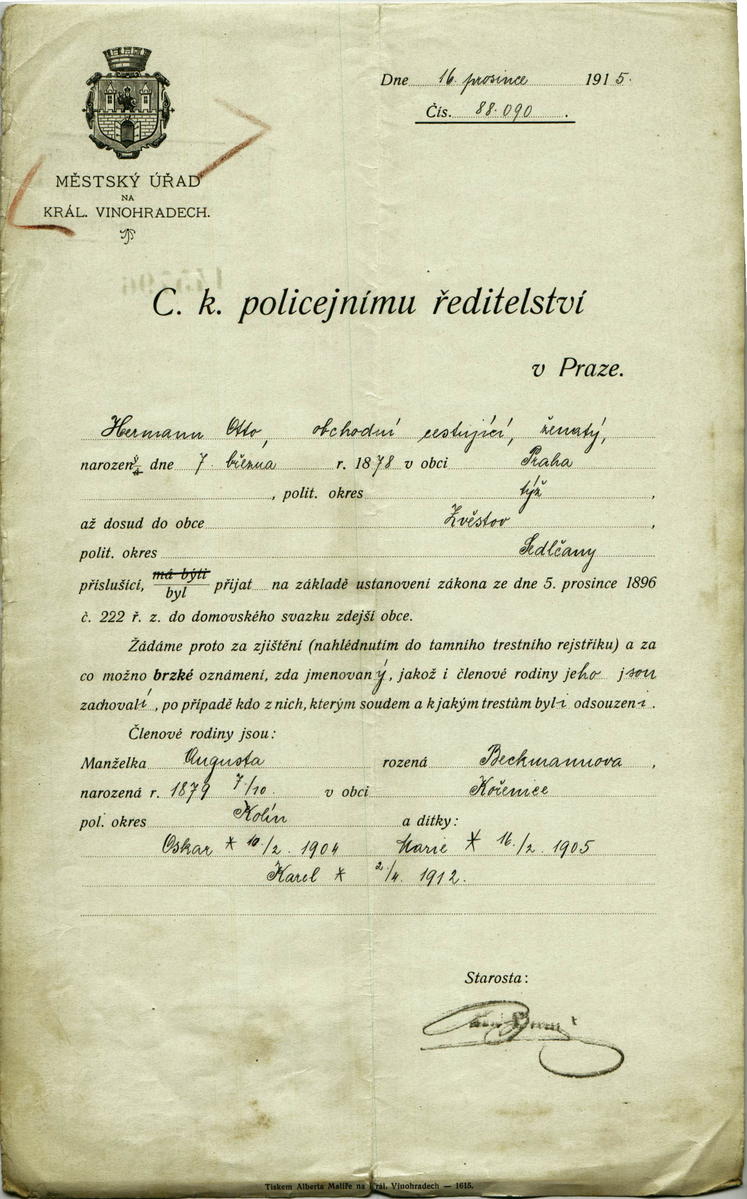 Dne 16. prosince 1915.
Čís. 88.090.
MĚSTSKÝ ÚŘAD
NA
KRÁL. VINOHRADECH.
C. k. policejnímu ředitelství
v Praze.
Hermann Otto, obchodní cestující, ženatý,
narozený/á dne 7. března r. 1878 v obci Praha
, polit. okres týž ,
až dosud do obce Zvěstov ,
polit. okres Sedlčany
příslušící, má býti
byl přijat na základě ustanovení zákona ze dne 5. prosince 1896
č. 222 ř. z. do domovského svazku zdejší obce.
Žádáme proto za zjištění (nahlédnutím do tamního trestního rejstříku) a za
co možno brzké oznámení, zda jmenovaný, jakož i členové rodiny jeho jsou
zachovalí, po případě kdo z nich, kterým soudem a k jakým trestům byli odsouzeni.
Členové rodiny jsou:
Manželka Augusta rozená Beckmannova ,
narozená r. 1879 7/10. v obci Kořenice
pol. okres Kolín a dítky:
Oskar * 10/2. 1904 Marie * 16./2. 1905
Karel * 2/4. 1912.
Starosta:
Tiskem Alberta Malíře na Král. Vinohradech — 1615.